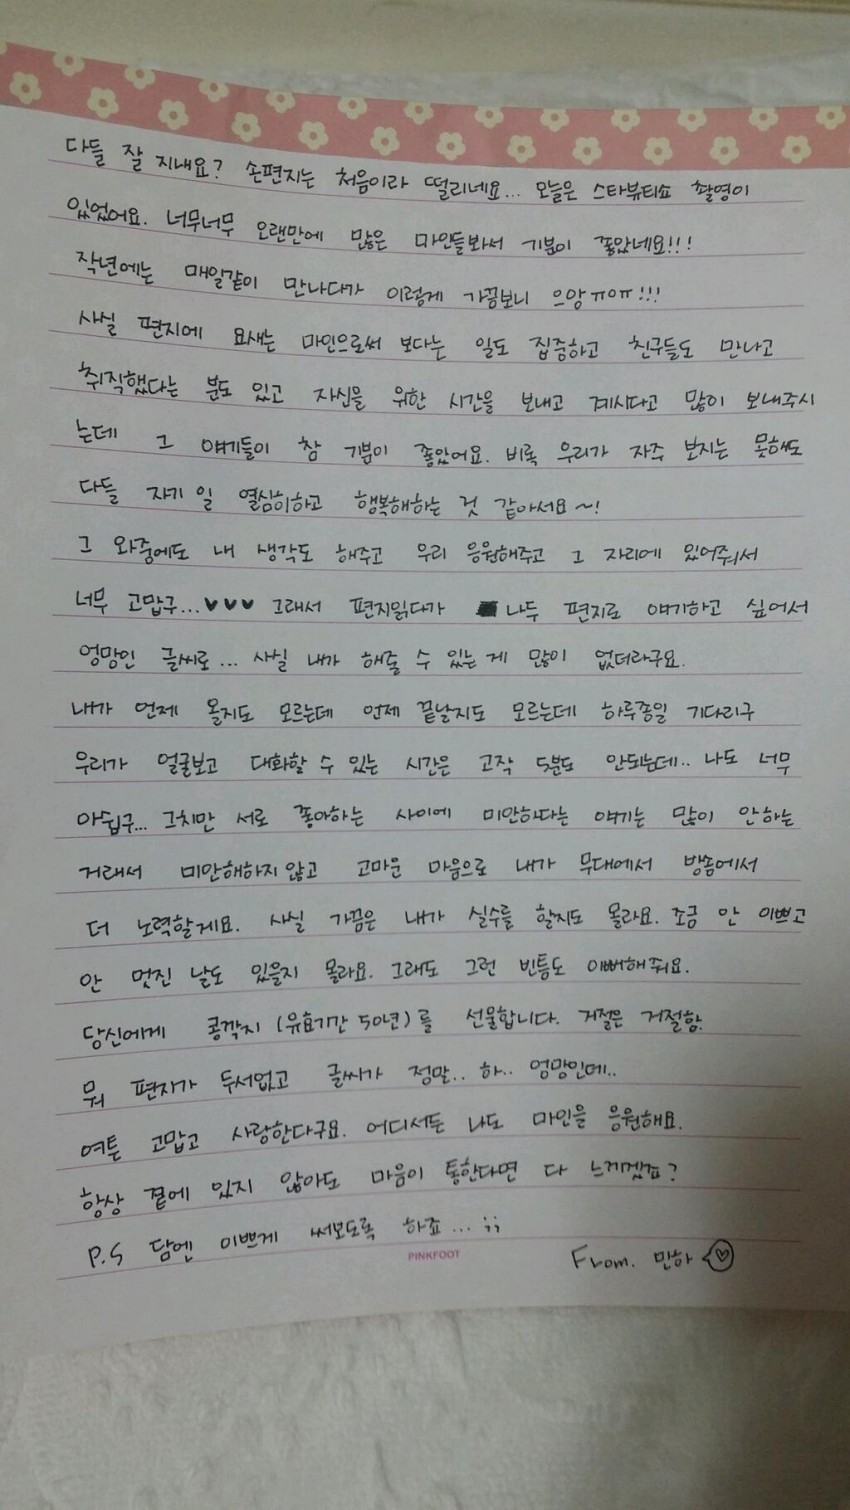 다들 잘 지내요? 손편지는 처음이라 떨리네요... 오늘은 스타뷰티쇼 촬영이
있었어요. 너무너무 오랜만에 많은 마인들봐서 기분이 좋았네요!!!
작년에는 매일같이 만나다가 이렇게 가끔보니 으앙ㅠㅇㅠ!!!
사실 편지에 요새는 마인으로써 보다는 일도 집중하고 친구들도 만나고
취직했다는 분도 있고 자신을 위한 시간을 보내고 계시다고 많이 보내주시
는데 그 얘기들이 참 기분이 좋았어요. 비록 우리가 자주 보지는 못해도
다들 자기 일 열심히하고 행복해하는 것 같아서요~!
그 와중에도 내 생각도 해주고 우리 응원해주고 그 자리에 있어줘서
너무 고맙구...♥♥♥ 그래서 편지읽다가 나두 편지로 얘기하고 싶어서
엉망인 글씨로... 사실 내가 해줄 수 있는 게 많이 없더라구요.
내가 언제 올지도 모르는데 언제 끝날지도 모르는데 하루종일 기다리구
우리가 얼굴보고 대화할 수 있는 시간은 고작 5분도 안되는데.. 나도 너무
아쉽구... 그치만 서로 좋아하는 사이에 미안하다는 얘기는 많이 안하는
거래서 미안해하지않고 고마운 마음으로 내가 무대에서 방송에서
더 노력할게요. 사실 가끔은 내가 실수를 할지도 몰라요. 조금 안 이쁘고
안 멋진 날도 있을지 몰라요. 그래도 그런 빈틈도 이뻐해줘요.
당신에게 콩깍지 (유효기간 50년)를 선물합니다. 거절은 거절함.
뭐 편지가 두서없고 글씨가 정말.. 하.. 엉망인데..
여튼 고맙고 사랑한다구요. 어디서든 나도 마인을 응원해요.
항상 곁에 있지 않아도 마음이 통한다면 다 느끼겠죠?
P.S 담엔 이쁘게 써보도록 하죠... ;;
PINKFOOT
From. 민하 ♡